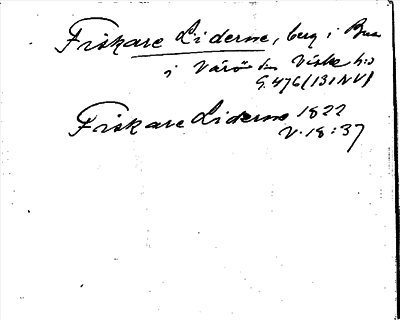 Fiskare Liderne, berg i Bua
i Värö sn Viske hd
G. 476 (131NV)
Fiskare Liderne 1822
V. 18:37